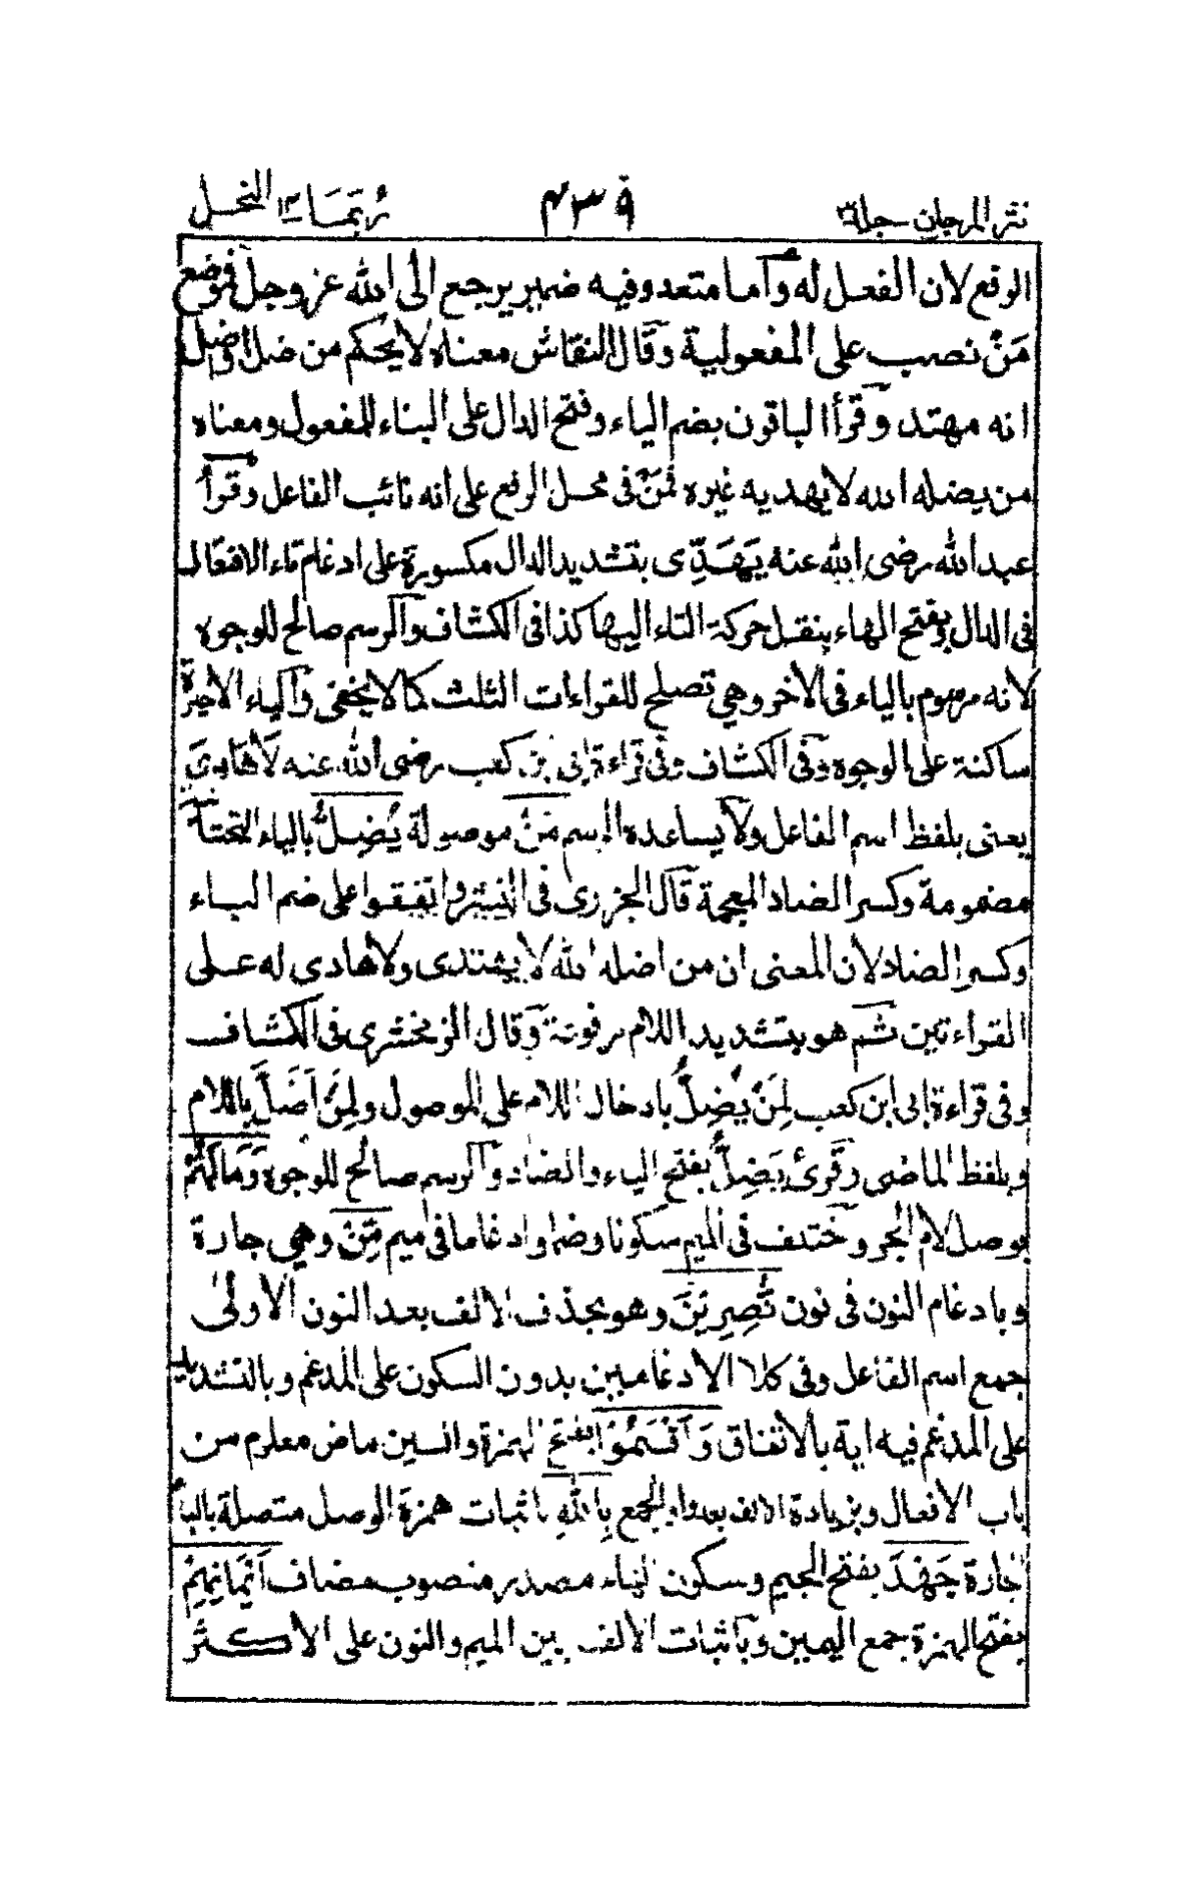 نثر المرجان جلد ٣ ٤٣٩ ربما ١٤ النحل
الرفع لان الفعل له وأما متعد وفيه ضمير يرجع الى الله عز وجل فموضع
مَنْ نصب على المفعولية وقال النقاش معناه لا يحكم من ضل او ضل
انه مهتد وقرأ الباقون بضم الياء وفتح الدال على البناء للمفعول ومعناه
من يضله الله لا يهديه غيره فمَنْ فى محل الرفع على انه نائب الفاعل وقرأ
عبد الله رضى الله عنه يَهَدِّى بتشديد الدال مكسورة على ادغام تاء الافتعال
فى الدال وبفتح الهاء بنقل حركة التاء اليها كذا فى الكشاف والرسم صالح للوجوه
لانه مرسوم بالياء فى الأخر وهي تصلح للقراءات الثلث كما لا يخفى والياء الاخيرة
ساكنة على الوجوه وفى الكشاف وفى قراءة ابى بن كعب رضى الله عنه لَا هَادِىَ
يعنى بلفظ اسم الفاعل ولا يساعده الرسم مَنْ موصولة يُضِلُّ بالياء التحتانية
مضمومة وكسر الضاد المعجمة قال الجزرى فى النشر واتفقوا على ضم الياء
وكسر الضاد لان المعنى ان من اضله الله لا يهتدى ولا هادى له على
القراءتين ثم هو بتشديد اللام مرفوعة وقال الزمخشرى فى الكشاف
وفى قراءة ابى ابن كعب لِمَنْ يُضِلُّ بادخال اللام على الموصول ولِمَنْ اَضَلَّ باللام
وبلفظ الماضى وقرئ يَضِلُّ بفتح الياء والضاد والرسم صالح للوجوه وَمَا لَهُمْ
بوصل لام الجر وختلف فى الميم سكونا وضما وادغاما فى ميم مِّنْ وهي جارة
وبادغام النون فى نون نّٰصِرِيْنَ وهو بحذف الالف بعد النون الاولىٰ
جمع اسم الفاعل وفى كلا الادغامين بدون السكون على المدغم وبالتشديد
على المدغم فيه اية بالاتفاق وَاَقْسَمُوْا بفتح الهمزة والسين ماض معلوم من
باب الافعال وبزيادة الالف بعد واو الجمع بِاللّٰهِ باثبات همزة الوصل متصلة بالباء
الجارة جَهْدَ بفتح الجيم وسكون الهاء مصدر منصوب مضاف اَيْمَانِهِمْ
بفتح الهمزة جمع اليمين وباثبات الالف بين الميم والنون على الاكثر